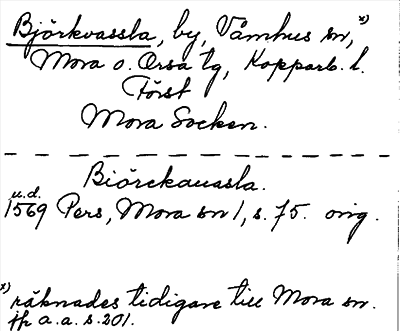 Björkvassla, by, Våmhus sn, x)
Mora o. Orsa tg, Kopparb. l.
Först
Mora Socken.
Biörckauassla.
u.d.
1569 Pers, Mora sn 1, s. 75. orig.
x) räknades tidigare till Mora sn.
jfr a.a. s. 201.